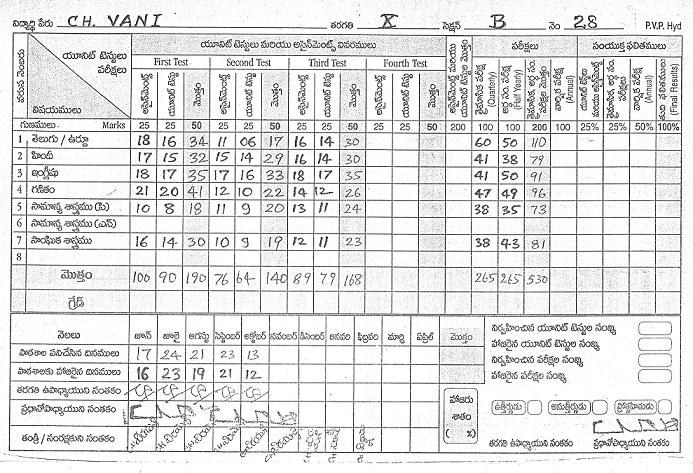 విద్యార్థి పేరు CH. VANI తరగతి X సెక్షన్ B నెం 28 P.V.P. Hyd
వరుస నెంబరు యూనిట్ టెస్టులు పరీక్షలు విషయములు
యూనిట్ టెస్టులు మరియు అసైన్‌మెంట్స్ వివరములు పరీక్షలు సంయుక్త ఫలితములు
First Test Second Test Third Test Fourth Test
అసైన్‌మెంట్స్ యూనిట్ టెస్టు మొత్తం అసైన్‌మెంట్స్ యూనిట్ టెస్టు మొత్తం అసైన్‌మెంట్స్ యూనిట్ టెస్టు మొత్తం అసైన్‌మెంట్స్ యూనిట్ టెస్టు మొత్తం
(Quarterly) (Half Yearly) (Annual) (Annual) (Final Results)
గుణములు / Marks 25 25 50 25 25 50 25 25 50 25 25 50 200 100 100 200 100 25% 25% 50% 100%
1 తెలుగు / ఉర్దూ 18 16 34 11 06 17 16 14 30 60 50 110
2 హింది 17 15 32 15 14 29 16 14 30 41 38 79
3 ఇంగ్లీషు 18 17 35 17 16 33 18 17 35 41 50 91
4 గణితం 21 20 41 12 10 22 14 12 26 47 49 96
5 సామాన్య శాస్త్రము (పి) 10 8 18 11 9 20 13 11 24 38 35 73
6 సామాన్య శాస్త్రము (ఎన్)
7 సాంఘిక శాస్త్రము 16 14 30 10 9 19 12 11 23 38 43 81
8
మొత్తం 100 90 190 76 64 140 89 79 168 265 265 530
గ్రేడ్
నెలలు జూన్ జూలై ఆగస్టు సెప్టెంబర్ అక్టోబర్ నవంబర్ డిసెంబర్ జనవరి ఫిబ్రవరి మార్చి ఏప్రిల్ మొత్తం
పాఠశాల పనిచేసిన దినములు 17 24 21 23 13
పాఠశాలకు హాజరైన దినములు 16 23 19 21 12
తరగతి ఉపాధ్యాయుని సంతకం
ప్రధానోపాధ్యాయుని సంతకం
తండ్రి / సంరక్షకుని సంతకం
హాజరు శాతం ( %)
నిర్వహించిన యూనిట్ టెస్టుల సంఖ్య
హాజరైన యూనిట్ టెస్టుల సంఖ్య
నిర్వహించిన పరీక్షల సంఖ్య
హాజరైన పరీక్షల సంఖ్య
ఉత్తీర్ణుడు అనుత్తీర్ణుడు
తరగతి ఉపాధ్యాయుని సంతకం ప్రధానోపాధ్యాయుని సంతకం